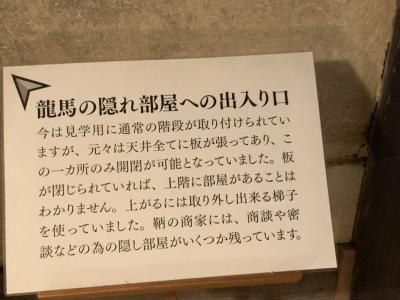 龍馬の隠れ部屋への出入り口
今は見学用に通常の階段が取り付けられてい
ますが、元々は天井全てに板が張ってあり、こ
の一カ所のみ開閉が可能となっていました。板
が閉じられていれば、上階に部屋があることは
わかりません。上がるには取り外し出来る梯子
を使っていました。鞆の商家には、商談や密
談などの為の隠し部屋がいくつか残っています。